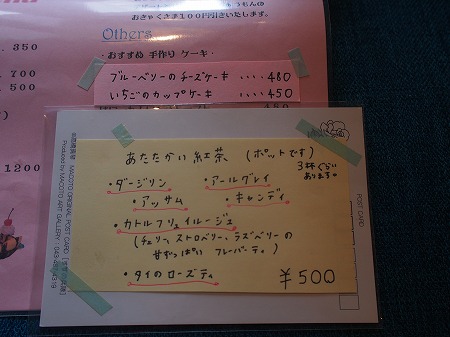 おきゃくさま100円引きいたします。
Others
・おすすめ 手作り ケーキ・
350
700
500
1200
ブルーベリーのチーズケーキ ････480
いちごのカップケーキ ････450
あたたかい紅茶 (ポットです)
3杯ぐらい
あります。
・ダージリン ・アールグレイ
・アッサム ・キャンディ
・カトルフリュイルージュ
(チェリー、ストロベリー、ラズベリーの
甘ずっぱい フレーバーティ)
・タイのローズティ
¥500
POST CARD
MACOTO ORIGINAL POST CARD
Produced by MACOTO ART GALLERY